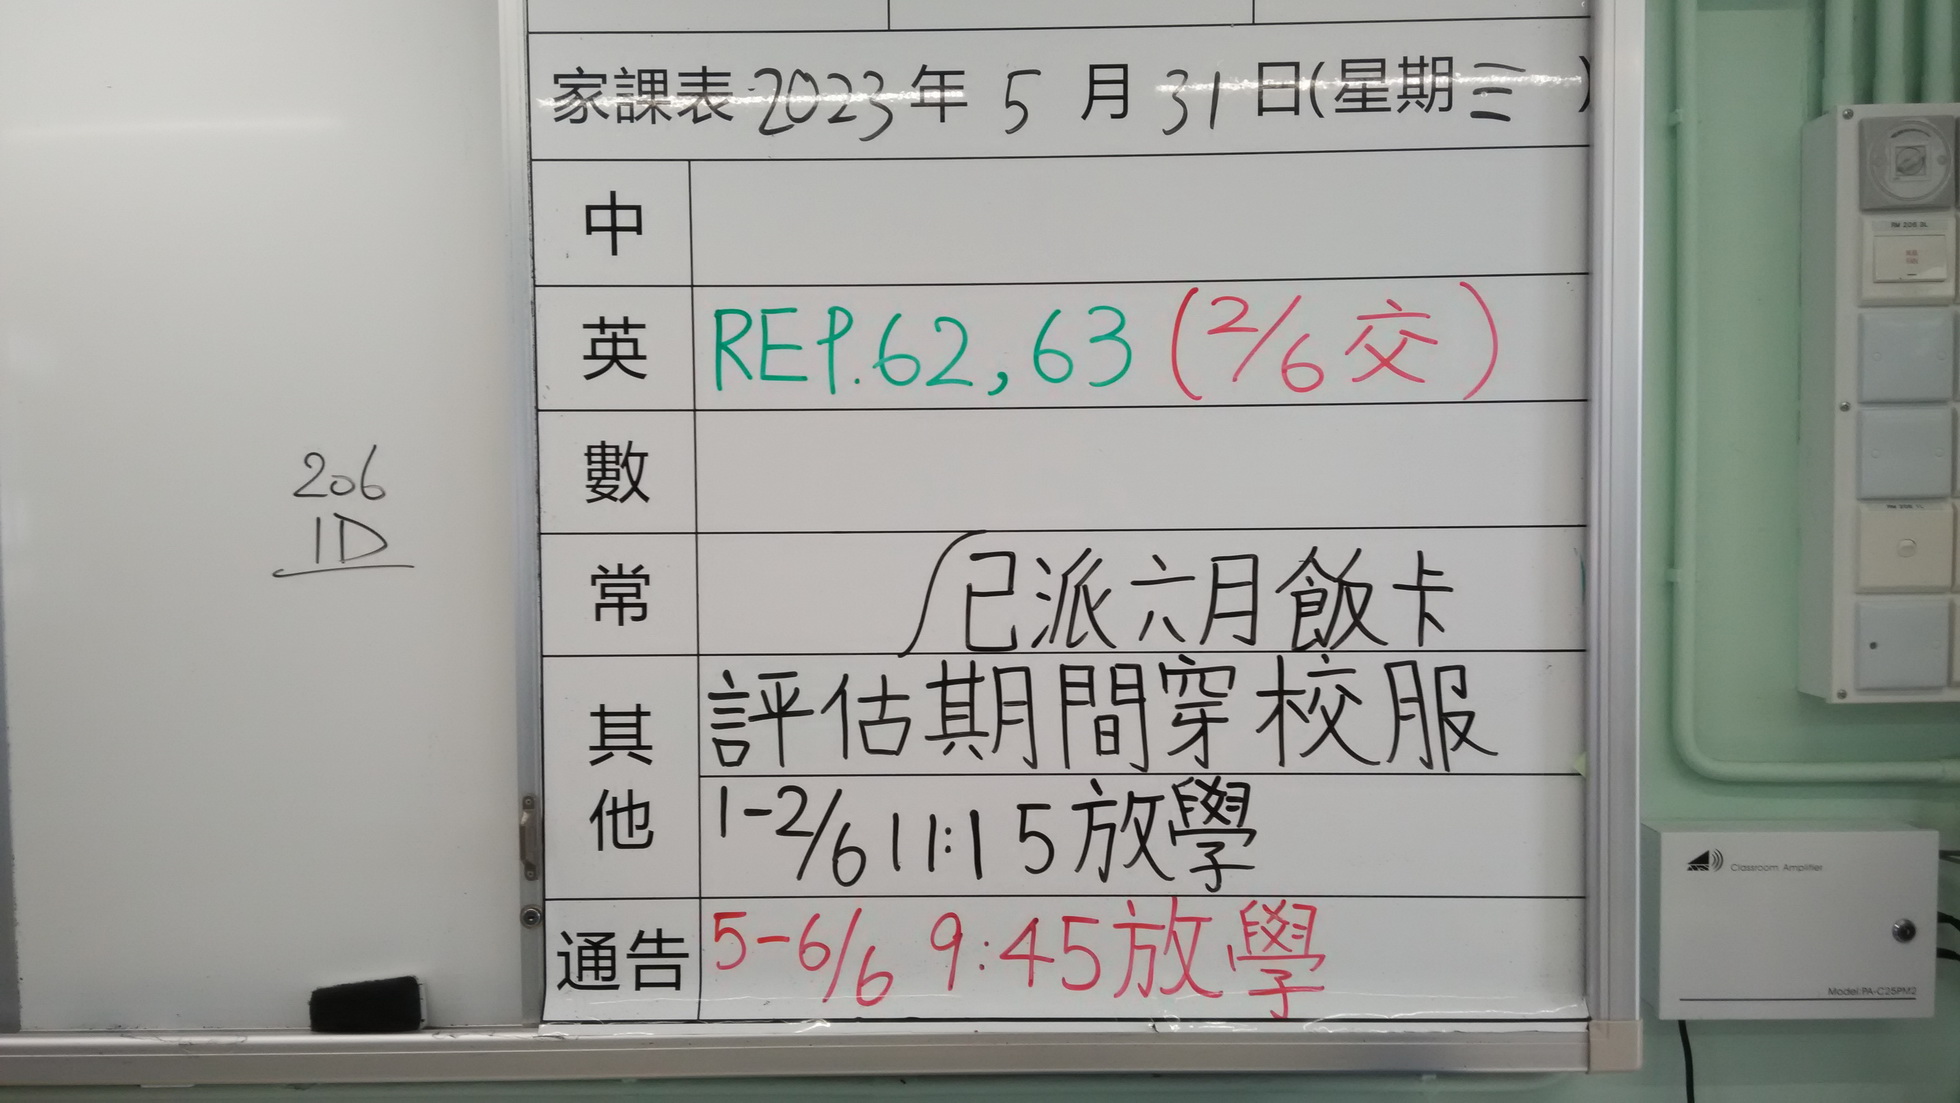 家課表 2023年 5 月 31 日(星期三 )
中
英 REP.62, 63 (2/6 交)
數
常 已派六月飯卡
其他 評估期間穿校服
1-2/6 11:15 放學
通告 5-6/6 9:45 放學
206
1D
Classroom Amplifier
Model:PA-C25PM2